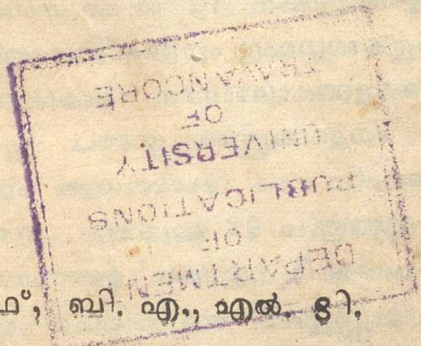 DEPARTMENT
OF
PUBLICATIONS
UNIVERSITY
OF
TRAVANCORE
ഫ്, ബി. എ., എൽ. ടി.